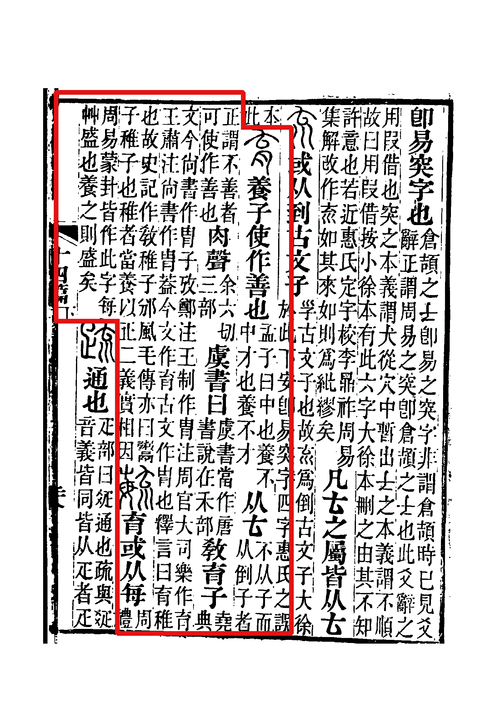 卽易突字也倉頡之𠫓卽易之突字非謂倉頡時已見爻
辭正謂周易之突卽倉頡之𠫓也此爻辭之
用叚借也突之本義謂犬從穴中暫出𠫓之本義謂不順
故曰用叚借按小徐本有此六字大徐本刪之由其不知
許意也若近惠氏定字校李鼎祚周易
集解改作㐬如其來如則爲紕繆矣凡𠫓之屬皆从𠫓
㐬或从到古文子㜽古文子也故㐬爲倒古文子大徐
於此下安卽易突字四字惠氏之誤
本
此
育養子使作善也孟子曰中也養不
中才也養不才从𠫓不从子而
从倒子者
正謂不善者
可使作善也肉聲余六切
三部虞書曰虞書當作唐
書說在禾部敎育子堯
典
文今尚書作冑子攷鄭注王制作冑注周官大司樂作育
王肅注尚書作冑葢今文作育古文作冑也釋言曰育稚
也故史記作敎稚子邠風毛傳亦曰鬻
子稚子也稚者當養以正二義實相因毓育或从每周
禮
周易蒙卦皆作此字每
艸盛也養之則盛矣疏通也疋部曰𤕟通也疏與𤕟
音義皆同皆从疋者疋
十四篇下